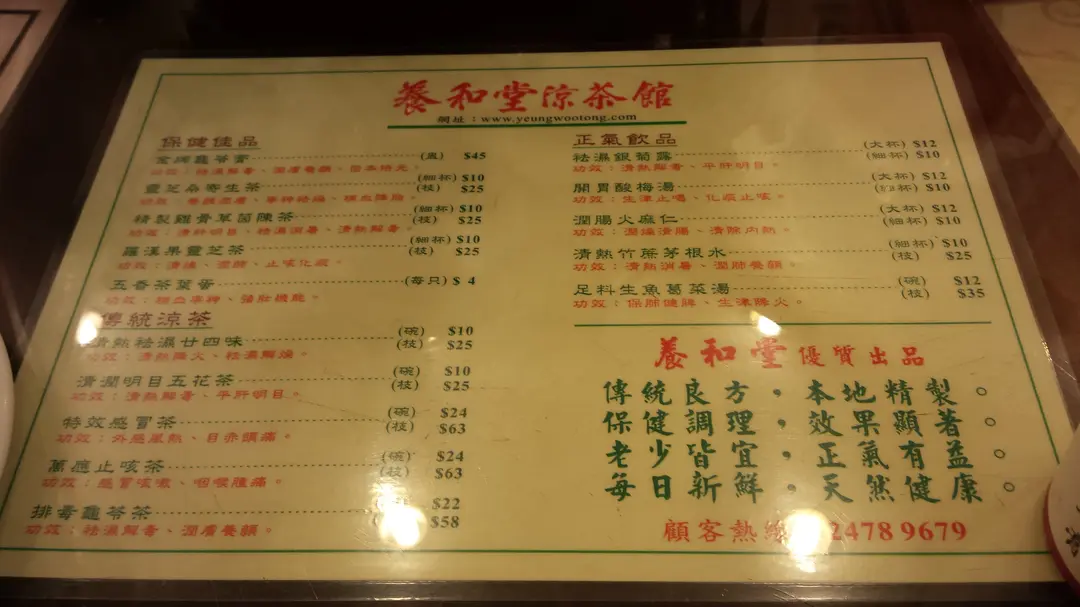 養和堂涼茶館
網址：www.yeungwootong.com
保健佳品
金牌龜苓膏 (盅) $45
功效：祛濕解毒、潤膚養顏、固本培元。
靈芝桑寄生茶 (細杯) $10
(枝) $25
功效：養顏潤膚、寧神
精製雞骨草茵陳茶 (細杯) $10
(枝) $25
功效：清肝明目、祛濕消暑、清熱解毒。
羅漢果靈芝茶 (細杯) $10
(枝) $25
功效：清燥、潤肺、止咳化痰。
五香茶葉蛋 (每只) $ 4
功效：補血寧神、強壯機能。
傳統涼茶
清熱祛濕廿四味 (碗) $10
(枝) $25
功效：清熱降火、祛濕解燥。
清潤明目五花茶 (碗) $10
(枝) $25
功效：清熱解毒、平肝明目。
特效感冒茶 (碗) $24
(枝) $63
功效：外感風熱、目赤頭痛。
萬應止咳茶 (碗) $24
(枝) $63
功效：感冒咳嗽、咽喉腫痛。
排毒龜苓茶 $22
$58
功效：祛濕解毒、潤膚養顏。
正氣飲品
祛濕銀菊露 (大杯) $12
(細杯) $10
功效：清熱解毒、平肝明目。
開胃酸梅湯 (大杯) $12
(細杯) $10
功效：生津止渴、化痰止咳。
潤腸火麻仁 (大杯) $12
(細杯) $10
功效：潤燥清腸、清除內熱。
清熱竹蔗茅根水 (細杯) $10
(枝) $25
功效：清熱消暑、潤肺養顏。
足料生魚葛菜湯 (碗) $12
(枝) $35
功效：保肺健脾、生津降火。
養和堂優質出品
傳統良方，本地精製。
保健調理，效果顯著。
老少皆宜，正氣有益。
每日新鮮，天然健康。
顧客熱線 2478 9679